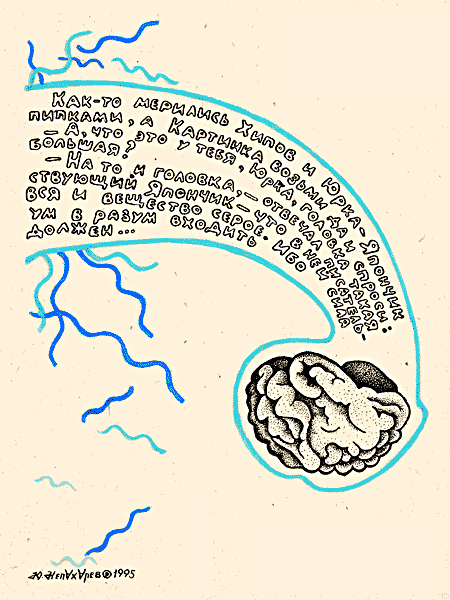 Как-то мерились Хипов и Юрка-Япончик
пипками, а Картинка возьми да и спроси:
– А, что это у тебя, Юрка, головка такая
большая?
– На то и головка, – отвечал писатель-
ствующий Япончик – что в ней сила
вся и вещество серое. Ибо
ум в разум входить
должен...
Ю.Непахарев©1995